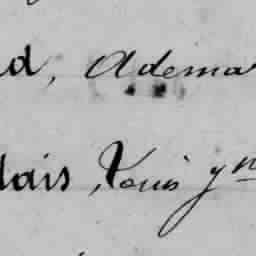 d, Adema
lais, Louis yn